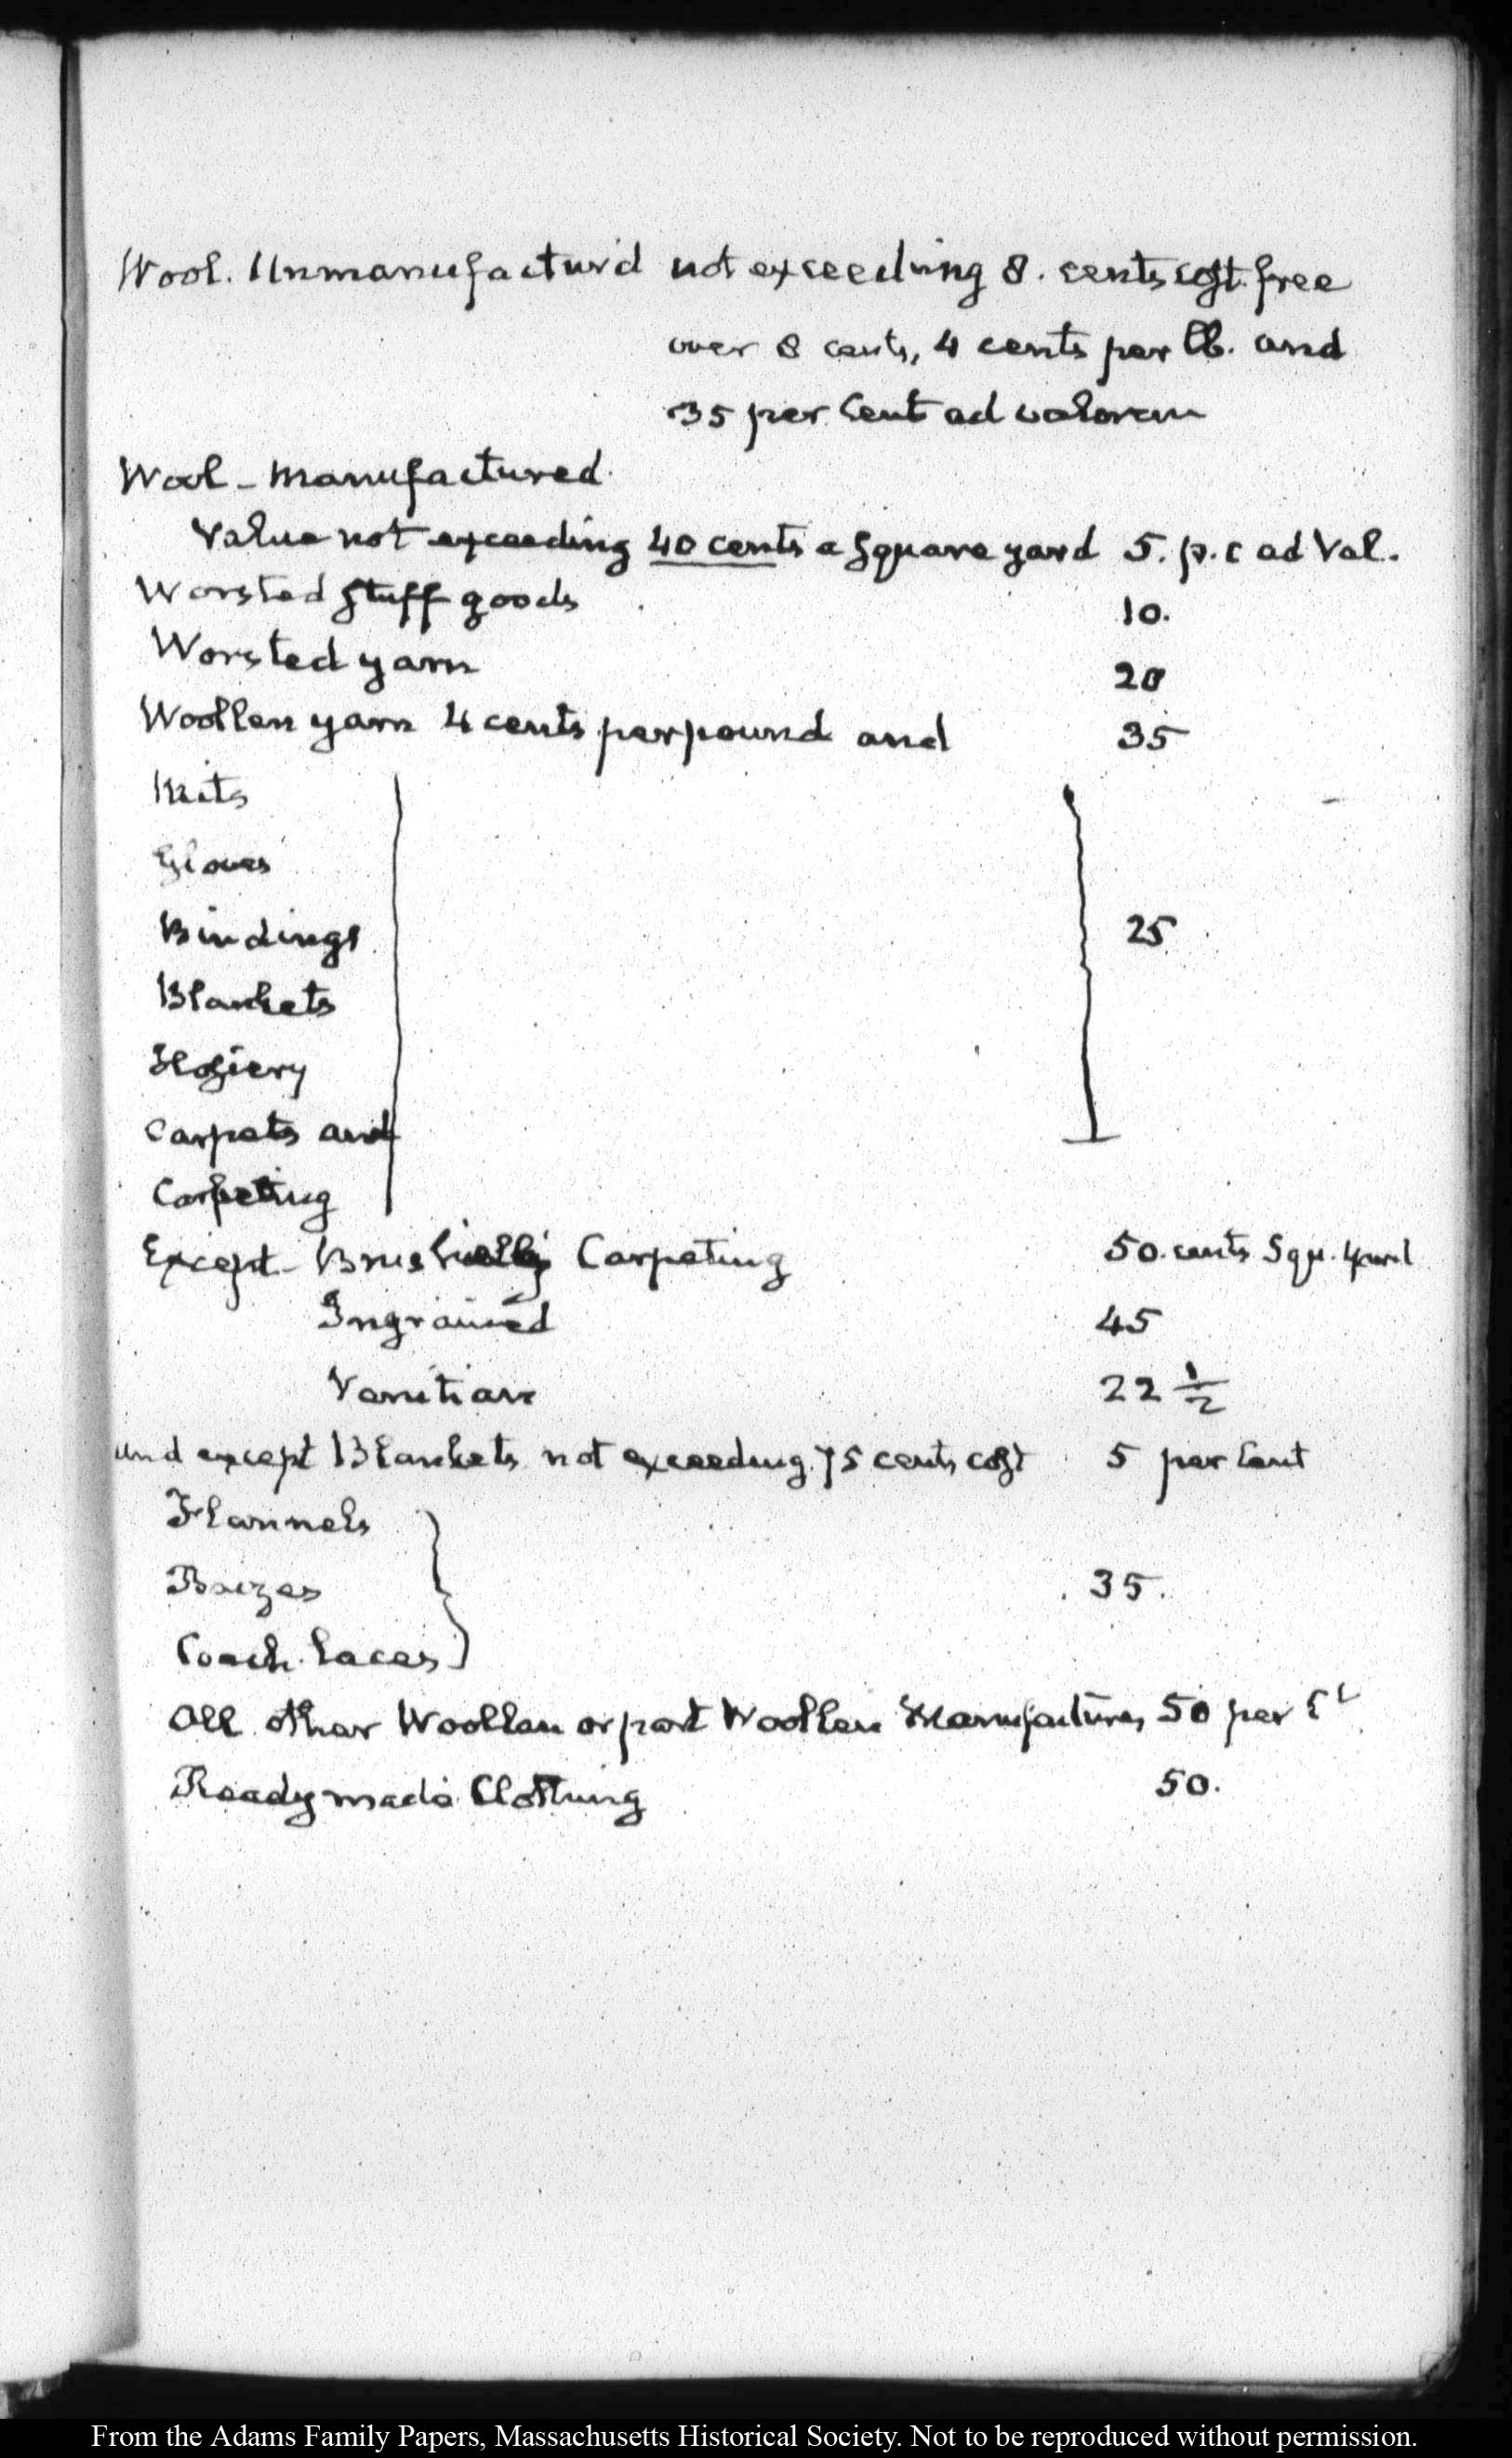 Wool. Unmanufactur'd not exceeding 8. cents cost. free
over 8 cents, 4 cents per lb. and
35 per Cent ad valorem
Wool - Manufactured.
Value not exceeding 40 cents a Square yard 5. p.c ad Val.
Worsted Stuff goods 10.
Worsted yarn 20
Woollen yarn 4 cents per pound and 35
Mits
Gloves
Bindings 25
Blankets
Hosiery
Carpets and
Carpeting
Except Carpeting 50. cents Squ. Yard
Ingrained 45
Venitian 22 1/2
and except Blankets not exceeding 75 cents cost 5 per Cent
Flannels
Baizes 35.
Coach. Laces
All other Woollen or part Woollen Manufactures 50 per Ct
Ready made Clothing 50.
From the Adams Family Papers, Massachusetts Historical Society. Not to be reproduced without permission.